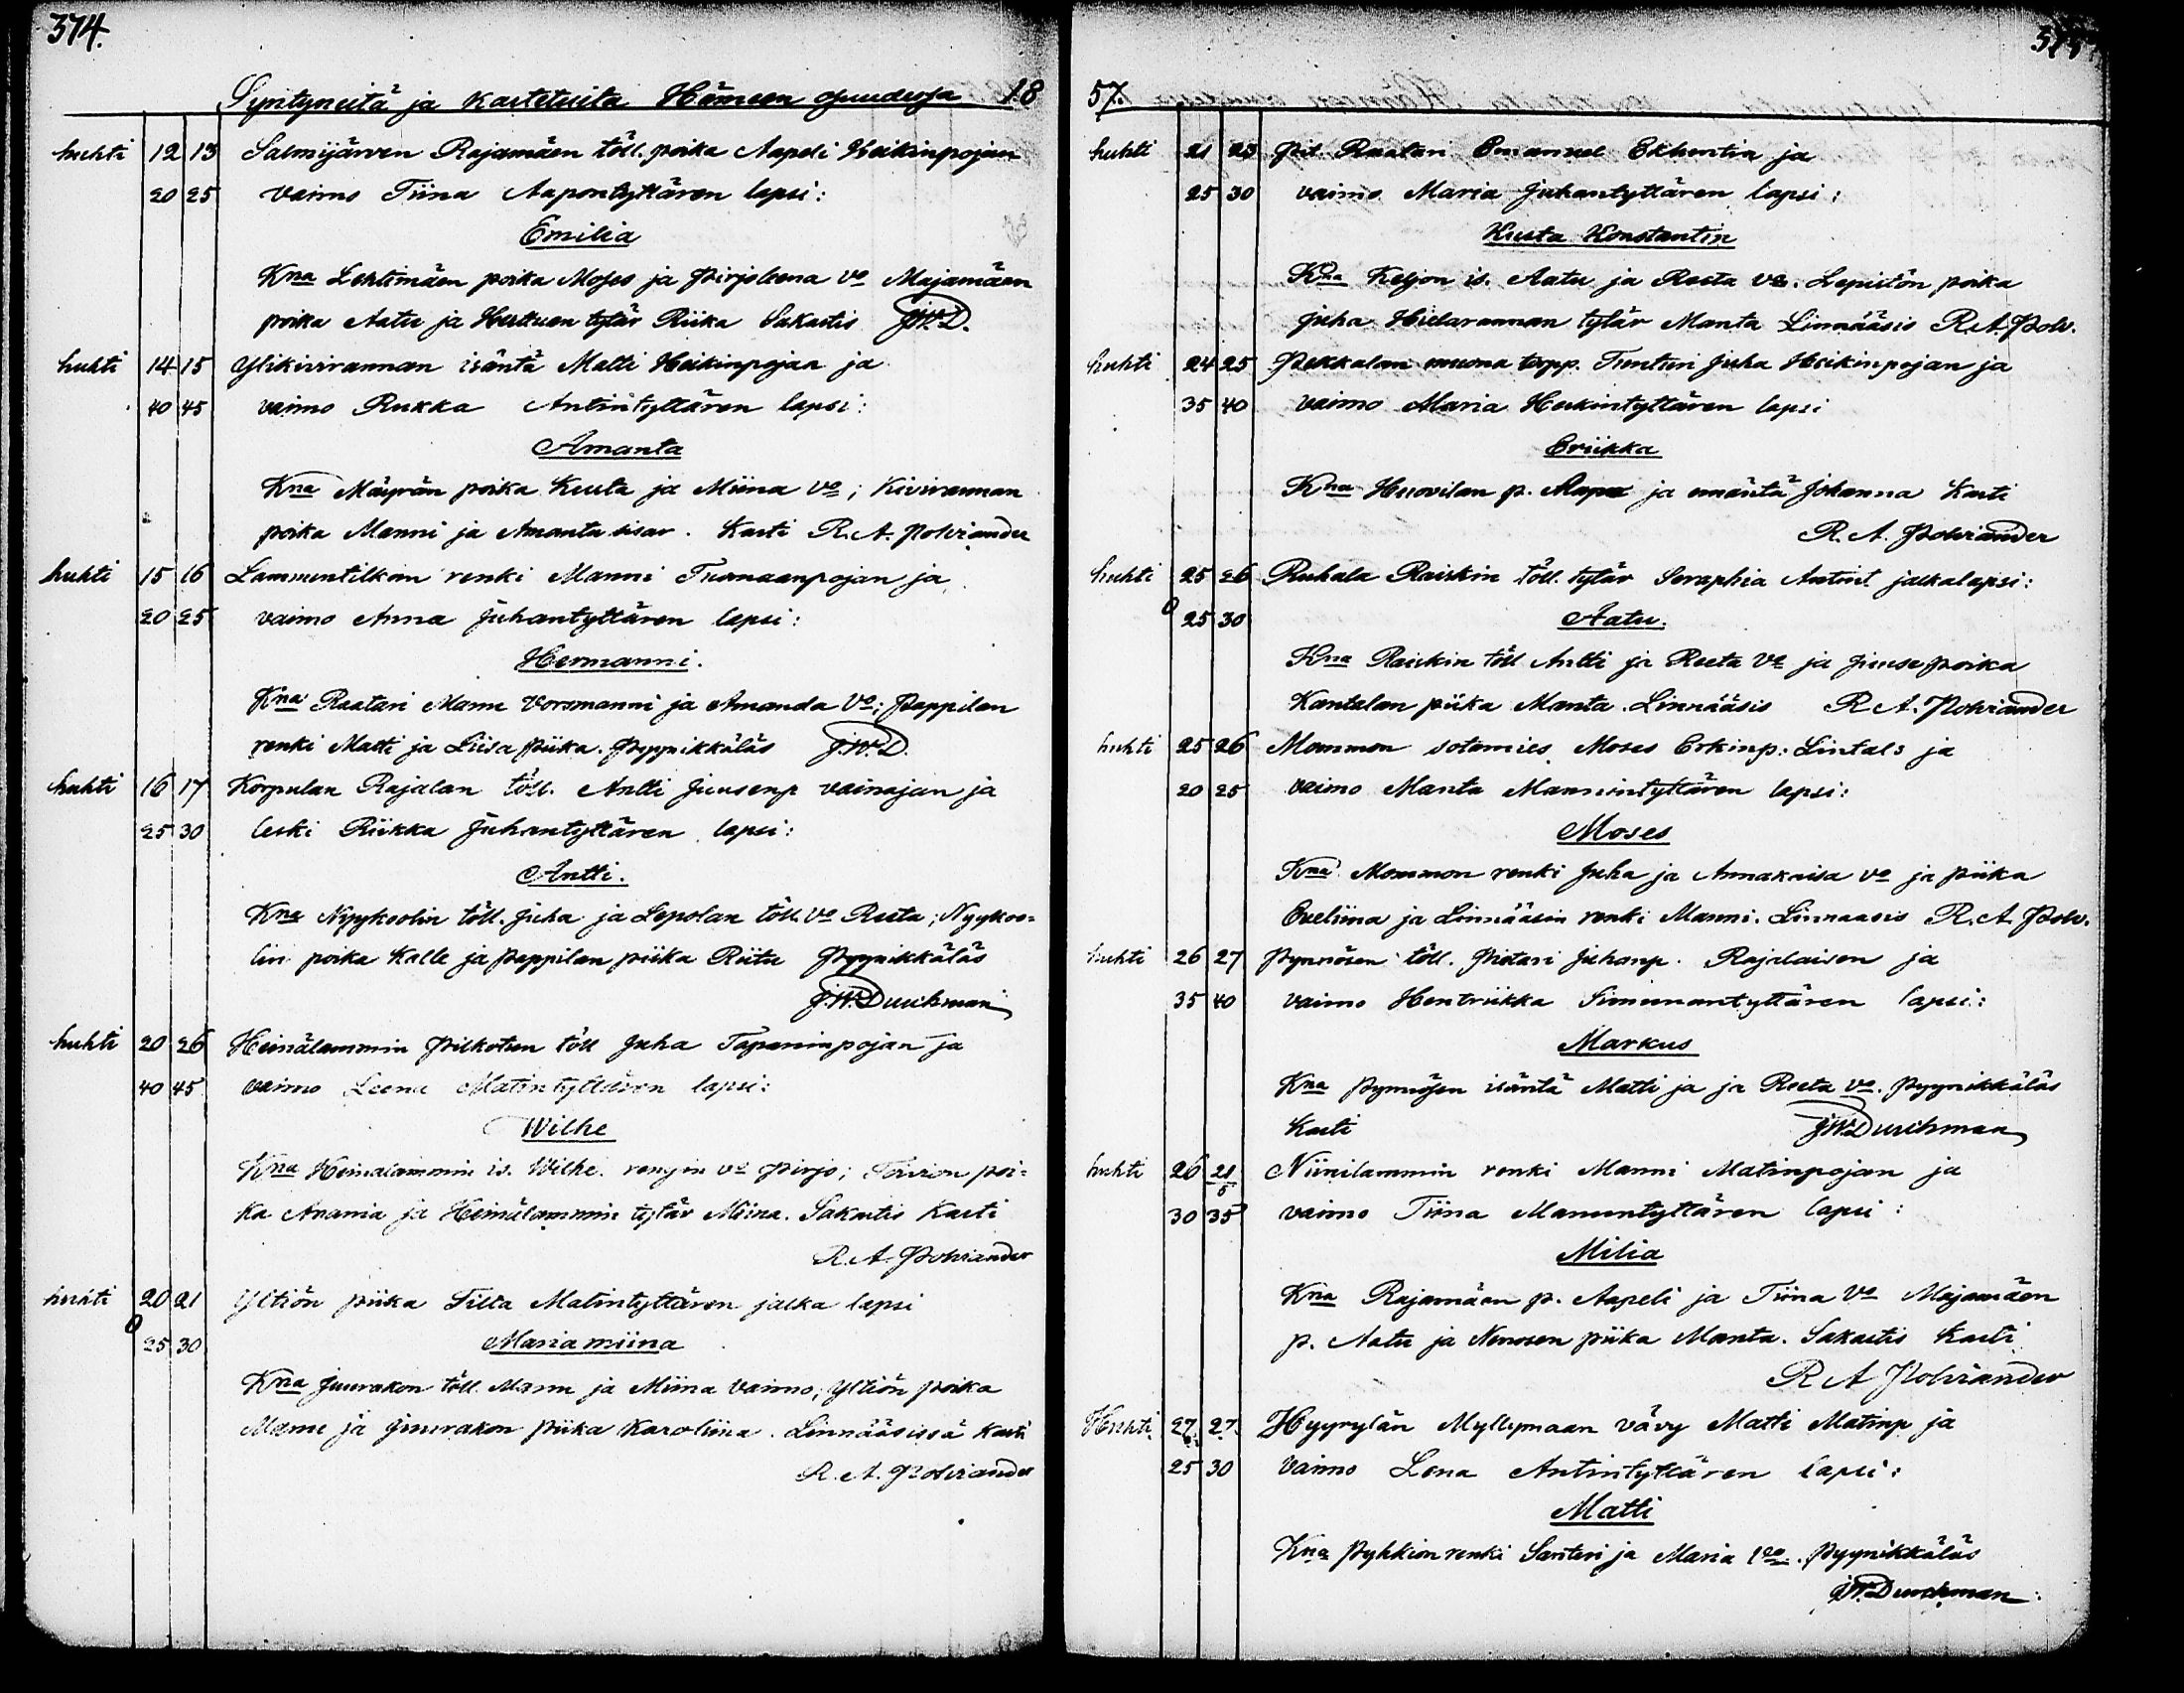 374.
Syntyneitä ja kastetuita Hämeen 18
huhti 12 13 Salmijärven Rajamäen töll. poika Aapeli Heikinpojan
20 25 vaimo Tiina Aapontyttären lapsi:
Emilia
Kna Lehtimäen poika Moses ja Pirjoleena vo Majamäen
poika Aatu ja Hertuen tytär Riika Sakastis J.W.D.
huhti 14 15 Ylikivirannan isäntä Matti Heikinpojan ja
40 45 vaimo Rukka Antintyttären lapsi:
Amanta
Kna Mäyrän poika Kusta ja Miina vo; Kivirannan
poika Manni ja Amanta sisar. Kasti R. A. Polviander
huhti 15 16 Lammentilkan renki Manni Tuomaanpojan ja
20 25 vaimo Anna Juhantyttären lapsi:
Hermanni.
Kna Raatari Manu Vorsmanni ja Amanda Vo; Pappilan
renki Matti ja Liisa piika. Pyynikkäläs J.W.D.
huhti 16 17 Korpulan Rajalan töll. Antti Juusenp vainajan ja
25 30 leski Riikka Juhantyttären lapsi:
Antti.
Kna Nyykoolin töll. Juha ja Lepolan töll. vo Reeta; Nyykoo=
lin poika Kalle ja Pappilan piika Riitu Pyynikkäläs
J.W.Durchman
huhti 20 26 Heinälammin Pilkotun töll Juha Tapaninpojan ja
40 45 vaimo Leena Matintyttären lapsi:
Wilhe
Kna Heinalammin is. Wilhe. rengin vo Pirjo; Torron poi=
ka Anania ja Heinälammin tytär Miina. Sakastis Kasti
R. A. Polviander
huhti 20 21 Yltiön piika Tilta Matintyttären jalka lapsi
0 25 30 Maria miina
Kna Juurakon töll. Manu ja Miina Vaimo; Yltiön poika
Manu ja Juurakon piika Karoliina. Linnääsissä Kasti
R. A. Polviander
57. 375
huhti 21 23 Pit. Raatari Emanuel Ekhertin ja
25 30 vaimo Maria Juhantyttären lapsi:
Kusta Konstantin
Kna Keljon is. Aatu ja Reeta vo. Lepistön poika
Juha Hietarannan tytär Manta Linnääsis R. A. Polv.
huhti 24 25 Pekkalan muona torpp. Tunturi Juha Heikinpojan ja
35 40 vaimo Maria Heikintyttären lapsi
Eriikka
Kna Huovilan p. Aapo ja emäntä Johanna Kasti
R. A. Polviander
huhti 25 26 Ruhala Raiskin töll. tytär Seraphia Antint. jalkalapsi:
0 25 30 Aatu.
Kna Raiskin töll Antti ja Reeta vo ja Juuse poika
Kantalan piika Manta. Linnääsis R A. Polviander
huhti 25 26 Mommon sotamies Moses Erkinp: Lintals ja
20 25 vaimo Manta Mannintyttären lapsi:
Moses
Kna Mommon renki Juha ja Annakaisa vo ja piika
Eveliina ja Linnääsin renki Manni. Linnaasis R. A. Polv.
huhti 26 27 Pynnösen töll. Pietari Juhanp. Rajalaisen ja
35 40 vaimo Hentriikka Simunantyttären lapsi:
Markus
Kna Pynnösen isäntä Matti ja ja Reeta vo. Pyynikkäläs
Kasti J.W.Durchman
huhti 26 21/5 Niinilammin renki Manni Matinpojan ja
30 35 vaimo Tiina Manuntyttären lapsi:
Milia
Kna Rajamäen p. Aapeli ja Tiina Vo Majamäen
p. Aatu ja Nenosen piika Manta. Sakastis Kasti
R A Polviander
Huhti 27. 27. Hyyrylän Myllymaan vävy Matti Matinp ja
25 30 vaimo Lena Antintyttären lapsi:
Matti
Kna Pyhkion renki Santeri ja Maria vo. Pyynikkäläs
J.W.Durchman.